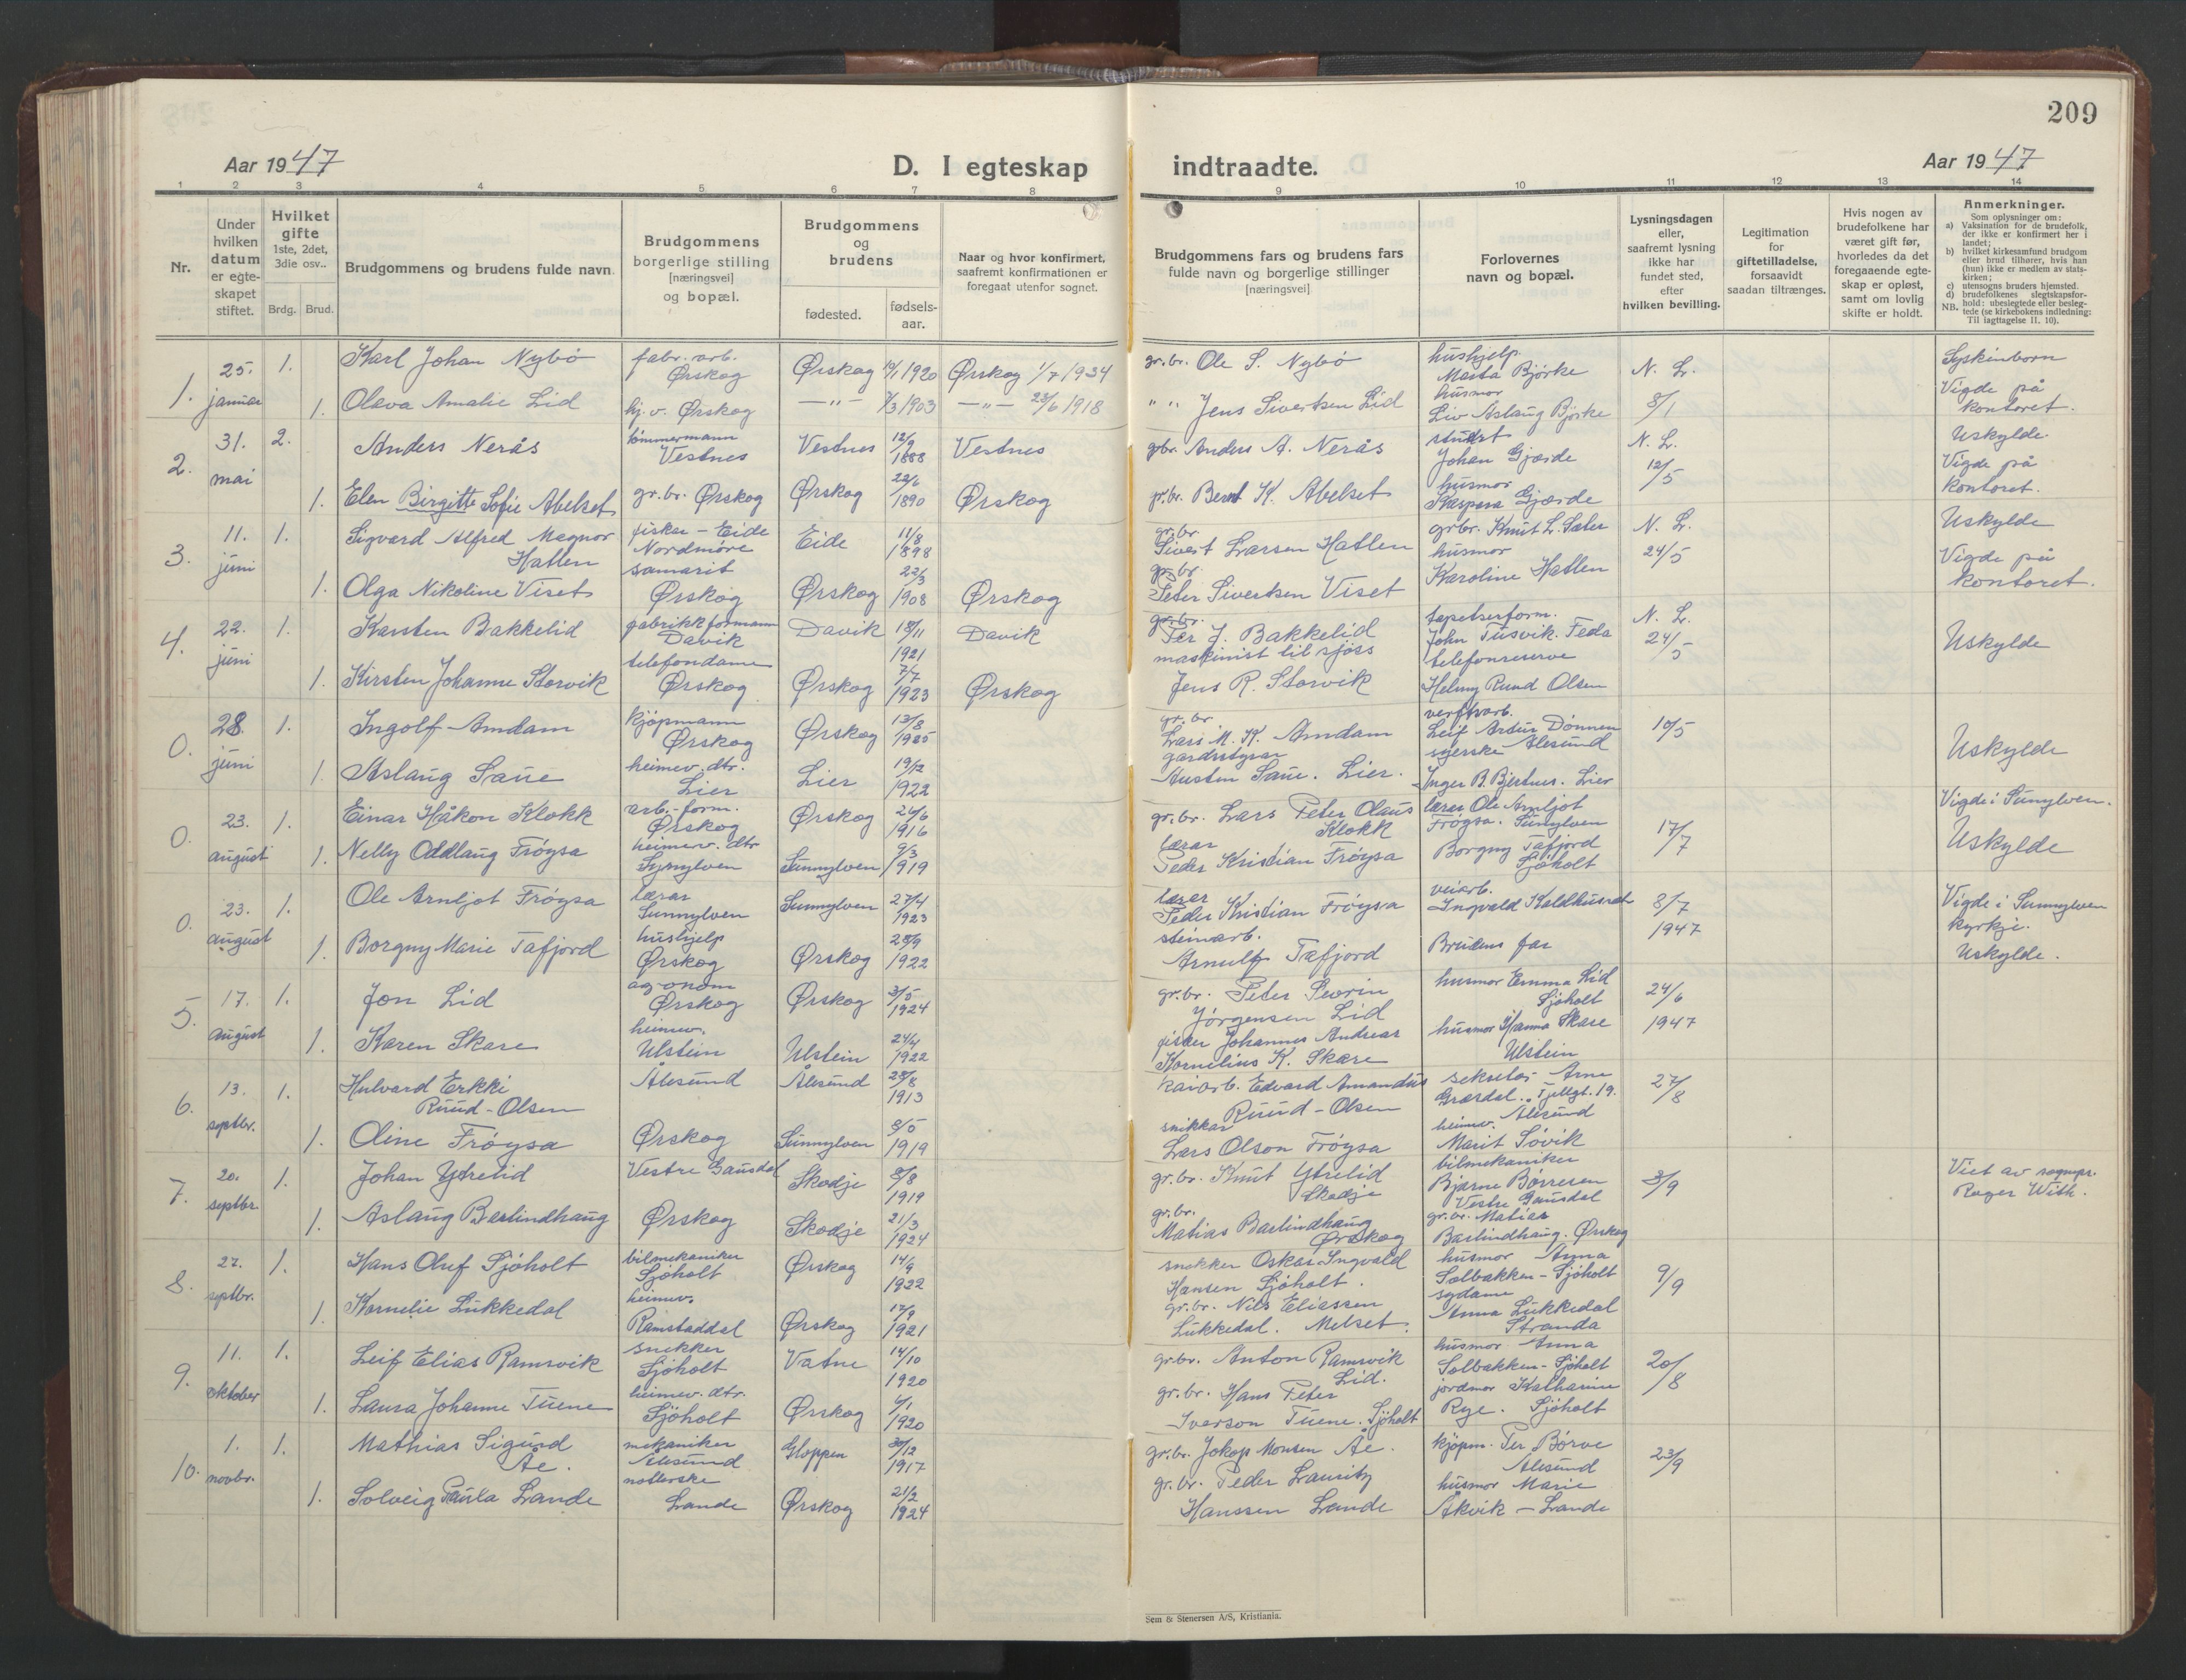 209
Aar 1947
D. I egteskap indtraadte.
Aar 1947
1 2 3 4 5 6 7 8 9 10 11 12 13 14
Nr.
Under hvilken datum er egte-skapet stiftet.
Hvilket gifte 1ste, 2det, 3die osv..
Brdg. Brud.
Brudgommens og brudens fulde navn.
Brudgommens borgerlige stilling [næringsvei] og bopæl.
Brudgommens og brudens
fødested.
fødsels-aar.
Naar og hvor konfirmert, saafremt konfirmationen er foregaat utenfor sognet.
Brudgommens fars og brudens fars fulde navn og borgerlige stillinger [næringsvei]
Forlovernes navn og bopæl.
Lysningsdagen eller, saafremt lysning ikke har fundet sted, efter hvilken bevilling.
Legitimation for giftetilladelse, forsaavidt saadan tiltrænges.
Hvis nogen av brudefolkene har været gift før, hvorledes da det foregaaende egte-skap er opløst, samt om lovlig skifte er holdt.
Anmerkninger.
Som oplysninger om:
a) Vaksination for de brudefolk, der ikke er konfirmert her i landet;
b) hvilket kirkesamfund brudgom eller brud tilhører, hvis han (hun) ikke er medlem av stats-kirken;
c) utensogns bruders hjemsted.
d) brudefolkenes slegtskapsfor-hold: ubeslegtede eller besleg-tede (se kirkebokens indledning:
NB. Til iagttagelse II. 10).
1. 25. januar 1. Karl Johan Nybø fabr. arb. Ørskog Ørskog 1920 Ørskog 1/7 1934 gr.br. Ole S. Nybø hushjelp Marta Bjørke N. L. 8/1 Syskinborn
1. Olava Amalie Lid hj.v. Ørskog —"— 1903 —"— 23/6 1918 " " Jens Sivertsen Lid husmor Liv Aslaug Bjørke Vigde på kontoret.
2. 31. mai 2. Anders Nerås tømmermann Vestnes Vestnes 12/9 1888 Vestnes gbr. Anders A. Nerås Johan Gjærde N. L. 12/5 Uskylde.
1. Elen Birgitte Sofie Abelset gr.br. Ørskog Ørskog 22/6 1890 Ørskog gr.br. Bernt K. Abelset husmor Kaspara Gjærde Vigde på kontoret.
3. 11. juni 1. Sigvard Alfred Magnor Hatlen fisker – Eide Nordmøre Eide 11/8 1898 gr.br. Sivert Larsen Hatlen grbr. Knut L. Sæter N. L. 24/5 Uskylde
1. Olga Nikoline Viset samarit Ørskog Ørskog 22/3 1908 Ørskog gr.br. Peter Sivertsen Viset husmor Karoline Hatlen Vigde på kontoret.
4. 22. juni 1. Karsten Bakkelid fabrikkformann Davik Davik 18/11 1921 Davik gr.br. Per J. Bakkelid tapetserform. John Tusvik. Feda N. L. 24/5 Uskylde
1. Kirsten Johanne Storvik telefondame Ørskog Ørskog 7/7 1923 Ørskog maskinist til sjøss Jens R. Storvik telefonreserve Helmy Ruud Olsen
0. 28. juni 1. Ingolf Amdam kjøpmann Ørskog Ørskog 13/8 gr.br. Lars M. K. Amdam verftsarb. Leif Artur Dønnem Ålesund 10/5 Uskylde
1. Aslaug Saue heimev. dtr. Lier Lier 19/12 1922 gardsstyrar Austen Saue. Lier. syerske Inger B. Bjertnes. Lier
0. 23. august 1. Einar Håkon Klokk arb.-form. Ørskog Ørskog 26/6 1916 gr.br. Lars Peter Olaus Klokk lærer Ole Arnljot Frøysa. Sunnylven 17/7 Vigde i Sunylven.
1. Nelly Oddlaug Frøysa heimev. dtr Synylven Sunnylven 9/3 1919 lærar Peder Kristian Frøysa Borgny Tafjord Sjøholt Uskylde
0. 23. august 1. Ole Arnljot Frøysa lærar Sunnylven Sunnylven 27/4 1923 lærer Peder Kristian Frøysa veiarb. Ingvald Kaldhusset 8/7 1947 Vigde i Sunnylven kyrkje.
1. Borgny Marie Tafjord hushjelp Ørskog Ørskog 28/9 1922 steinarb. Arnulf Tafjord Brudens far Uskylde.
5. 17. august 1. Jon Lid agronom Ørskog Ørskog 3/5 1924 gr.br. Peter Severin Jørgensen Lid husmor Emma Lid Sjøholt 24/6 1947
1. Karen Skare heimev. Ulstein Ulstein 24/4 1922 fisker Johannes Andreas Kornelius K. Skare husmor Hanna Skare Ulstein
6. 13. septbr. 1. Hulvard Erkki Ruud-Olsen Ålesund Ålesund 28/8 1913 kaiarb. Edvard Amandus Ruud-Olsen sekretær Arne Græsdal. Fjellgt. 19. Ålesund 27/8
1. Oline Frøysa Ørskog Sunnylven 8/5 1919 snikkar Lars Olson Frøysa heimev. Marit Søvik
7. 20. septbr. 1. Johan Ytrelid Vestre Gausdal Skodje 8/8 1919 gr.br. Knut Ytrelid Skodje bilmekaniker Bjarne Børresen Vestre Gausdal 3/9 Viet av sognepr. Roger With.
1. Aslaug Barlindhaug Ørskog Skodje 21/3 1924 gr.br. Matias Barlindhaug Ørskog gr.br. Matias Barlindhaug. Ørskog
8. 27. septbr. 1. Hans Oluf Sjøholt bilmekaniker Sjøholt Ørskog 14/9 1922 snekker Oskar Ingvald Hansen Sjøholt. husmor Anna Solbakken – Sjøholt 9/9
1. Kornelie Lukkedal heimev. Ramstaddal Ørskog 17/9 1921 gr.br. Nils Eliassen Lukkedal. Melset. sydame Anna Lukkedal Stranda
9. 11. oktober 1. Leif Elias Ramsvik snekker Sjøholt Vatne 14/10 1920 gr.br. Anton Ramsvik Lid. husmor Anna Solbakken – Sjøholt 20/8
1. Laura Johanne Tuene heimev. dtr. Sjøholt Ørskog 1920 gr.br. Hans Peter Iverson Tuene. Sjøholt jordmor Katharine Rye. Sjøholt
10. 1. novbr. 1. Mathias Sigurd Åe. mekaniker Ålesund Gloppen 30/12 1917 gr.br. Jakop Monsen Åe. kjøpm. Per Børve Ålesund 23/9
1. Solveig Paula Lande Lande Ørskog 21/2 1924 gr.br. Peder Lauritz Hanssen Lande husmor Marie Åkvik – Lande
Sem & Stenersen A/S, Kristiania.